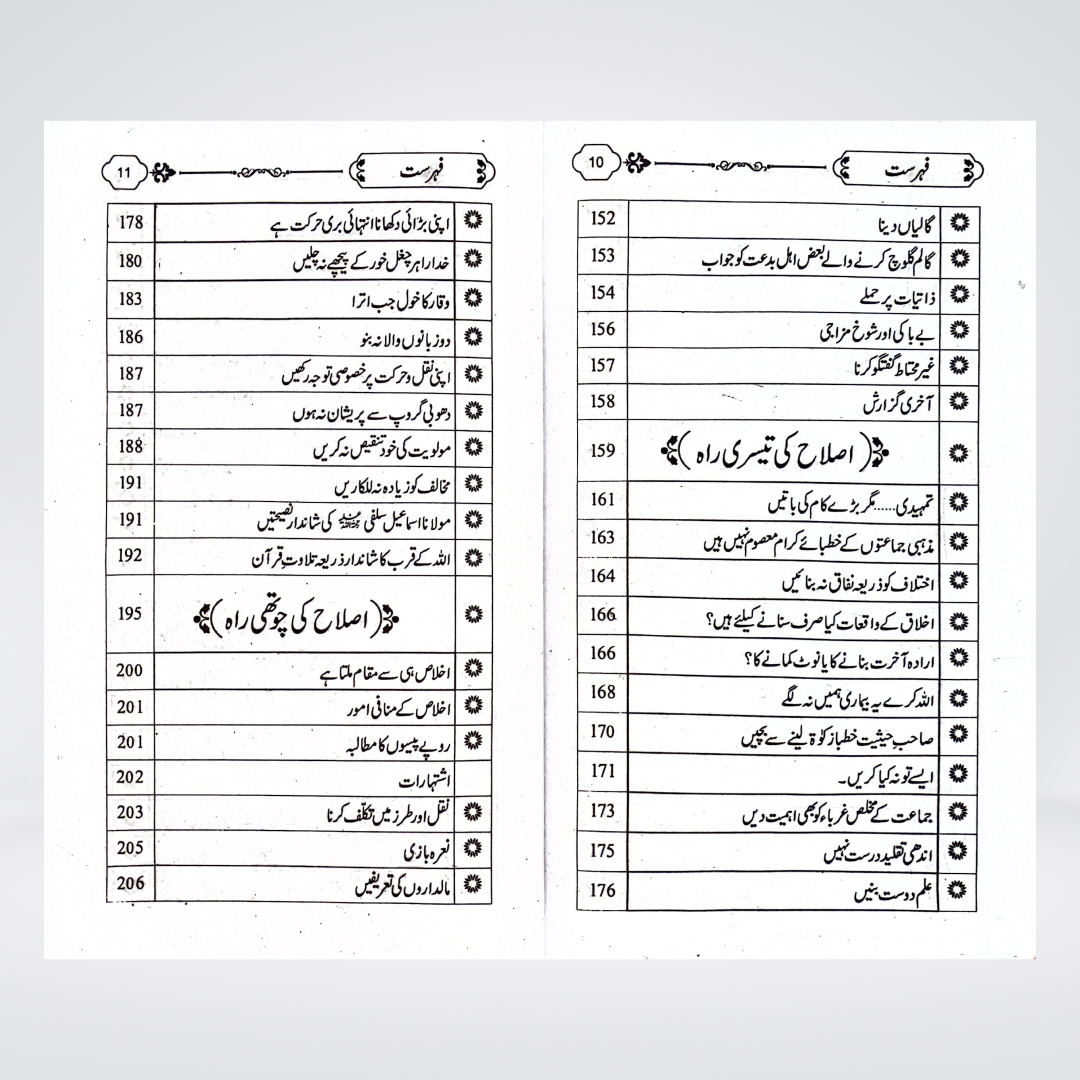 فہرست 10
گالیاں دینا 152
گالم گلوچ کرنے والے بعض اہل بدعت کو جواب 153
ذاتیات پر حملے 154
بے باکی اور شوخ مزاجی 156
غیر محتاط گفتگو کرنا 157
آخری گزارش 158
(اصلاح کی تیسری راہ) 159
تمہیدی.....مگر بڑے کام کی باتیں 161
مذہبی جماعتوں کے خطبائے کرام معصوم نہیں ہیں 163
اختلاف کو ذریعہ نفاق نہ بنائیں 164
اخلاق کے واقعات کیا صرف سنانے کیلئے ہیں؟ 166
ارادہ آخرت بنانے کا یا نوٹ کمانے کا؟ 166
اللہ کرے یہ بیماری ہمیں نہ لگے 168
صاحبِ حیثیت خطباز کوۃ لینے سے بچیں 170
ایسے تو نہ کیا کریں۔ 171
جماعت کے مخلص غرباء کو بھی اہمیت دیں 173
اندھی تقلید درست نہیں 175
علم دوست بنیں 176
فہرست 11
اپنی بڑائی دکھانا انتہائی بری حرکت ہے 178
خدارا ہر چغل خور کے پیچھے نہ چلیں 180
وقار کا خول جب اترا 183
دو زبانوں والا نہ بنو 186
اپنی نقل و حرکت پر خصوصی توجہ رکھیں 187
دھوبی گروپ سے پریشان نہ ہوں 187
مولویت کی خود تنقیص نہ کریں 188
مخالف کو زیادہ نہ للکاریں 191
مولانا اسماعیل سلفی کی شاندار نصیحتیں 191
اللہ کے قرب کا شاندار ذریعہ تلاوتِ قرآن 192
(اصلاح کی چوتھی راہ) 195
اخلاص ہی سے مقام ملتا ہے 200
اخلاص کے منافی امور 201
روپے پیسوں کا مطالبہ 201
اشتہارات 202
نقل اور طرز میں تکلّف کرنا 203
نعرہ بازی 205
مالداروں کی تعریفیں 206